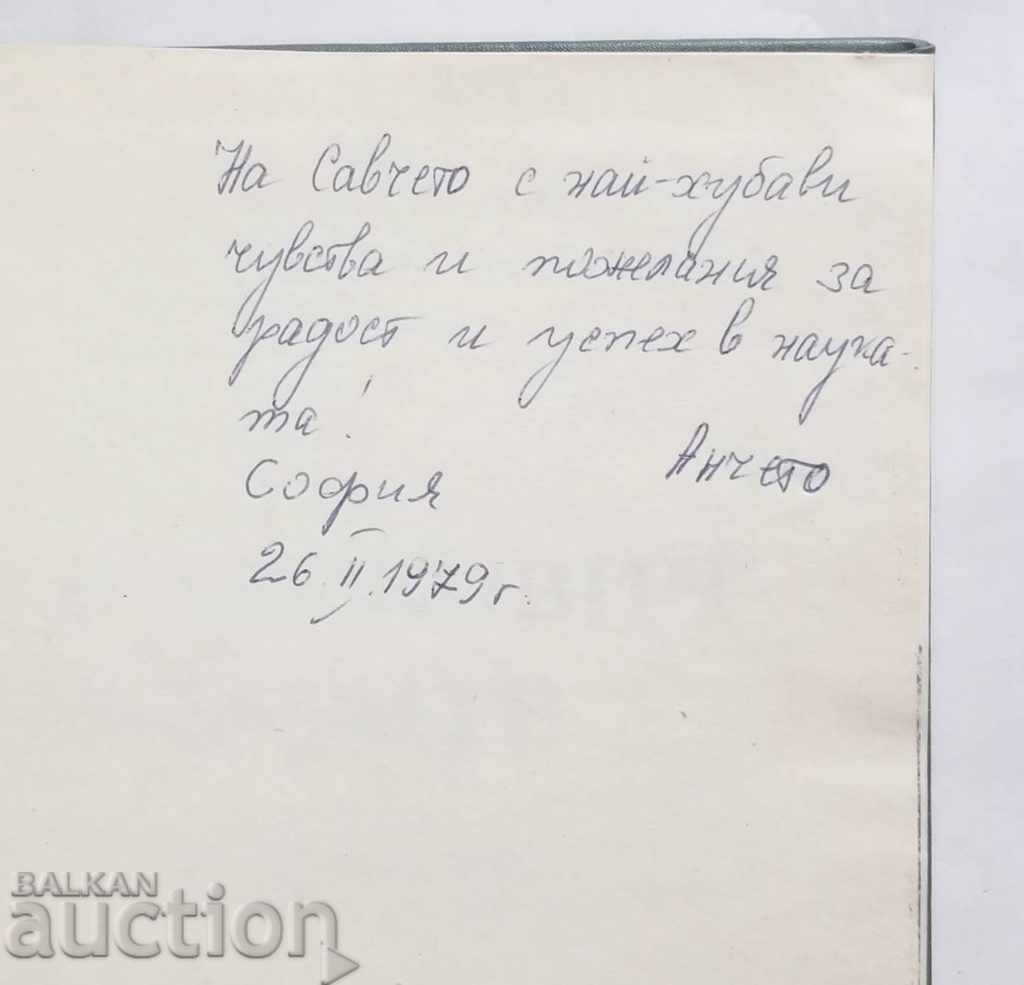 На Савчето с най-хубави
чувства и пожелания за
радост и успех в наука-
та!
Анчето
София
26.II.1979г.
BALKAN
auction